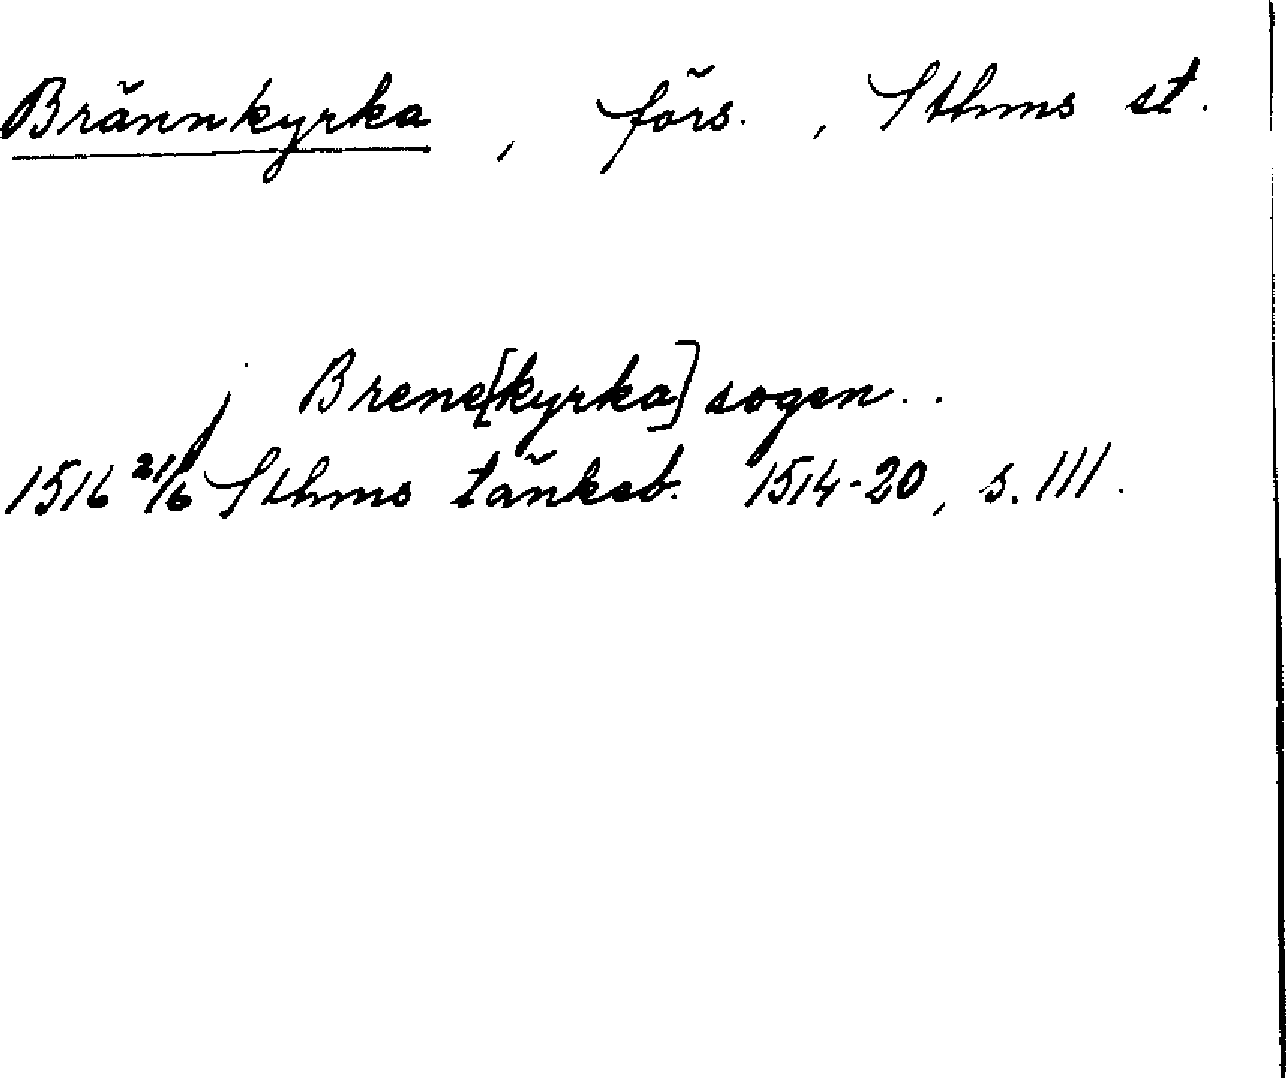 Brännkyrka, förs., Sthms st.
j Brene[kyrka] sogen..
1516 21/6 Sthms tänkeb. 1514-20, s. 111.